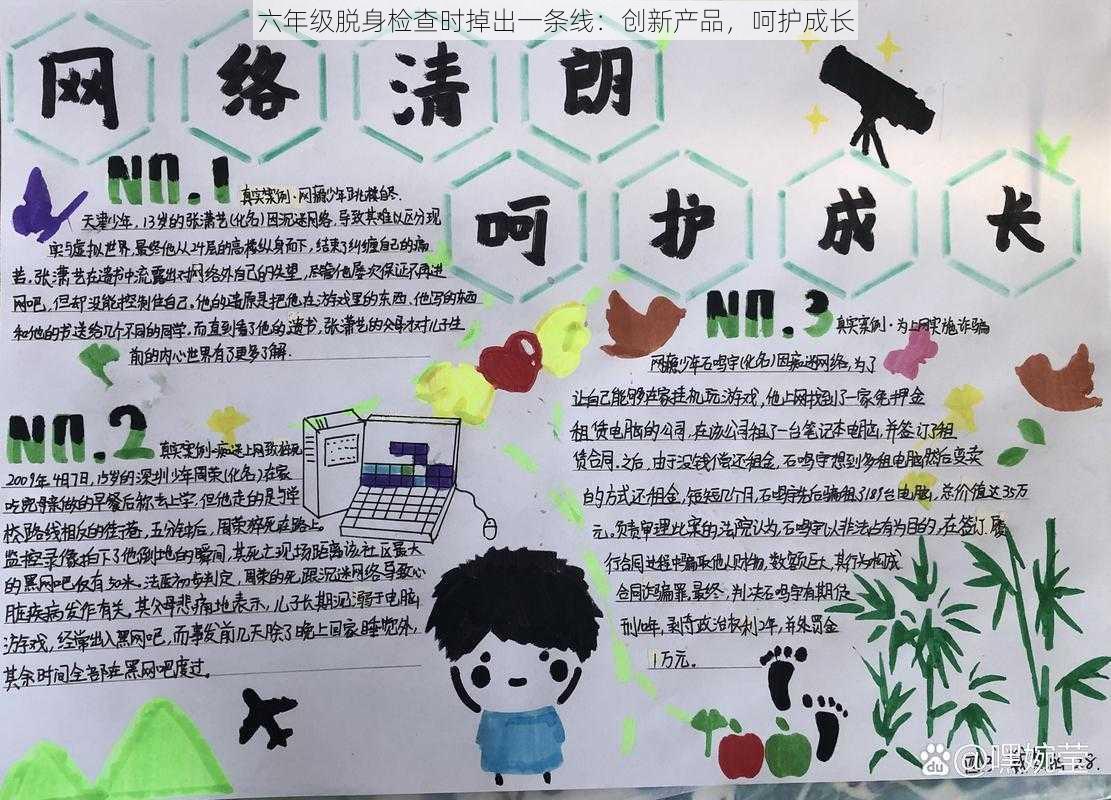 六年级脱身检查时掉出一条线：创新产品，呵护成长
网络清朗
呵护成长
NO.1
真实案例·网瘾少年跳楼自尽.
天津少年，13岁的张潇艺(化名)因沉迷网络，导致其难以区分现
实与虚拟世界.最终他从24层的高楼纵身而下，结束了纠缠自己的痛
苦。张潇艺在遗书中流露出对网络外自己的失望，尽管他屡次保证不再进
网吧，但却没能控制住自己。他的遗愿是把他在游戏里的东西，他写的东西
和他的书送给几个不同的同学。而直到看了他的遗书，张潇艺的父母才对儿子生
前的内心世界有了更多了解.
NO.2
真实案例·痴迷上网致猝死
2009年4月7日，15岁的深圳少年周荣(化名)在家
吃完母亲做的早餐后称去上学，但他走的是与学
校路线相反的街巷，五分钟后，周荣猝死在路上。
监控录像拍下了他倒地的瞬间，其死亡现场距离该社区最大
的黑网吧仅有50米。法医初步判定，周荣的死跟沉迷网络导致心
脏疾病发作有关。其父母悲痛地表示，儿子长期沉溺于电脑
游戏，经常出入黑网吧，而事发前几天除了晚上回家睡觉外，
其余时间全部在黑网吧度过。
NO.3
真实案例·为上网实施诈骗
网瘾少年石鸣宇(化名)因痴迷网络，为了
让自己能够在家挂机玩游戏，他上网找到了一家免押金
租赁电脑的公司，在该公司租了一台笔记本电脑，并签订了租
赁合同。之后，由于没钱偿还租金，石鸣宇想到多租电脑然后变卖
的方式还租金，短短几个月，石鸣宇先后骗租了189台电脑，总价值达35万
元。负责审理此案的法院认为，石鸣宇以非法占有为目的，在签订、履
行合同过程中骗取他人财物，数额巨大，其行为构成
合同诈骗罪最终，判决石鸣宇有期徒
刑10年，剥夺政治权利2年，并处罚金
1万元。
Bai du @嘿婉莹